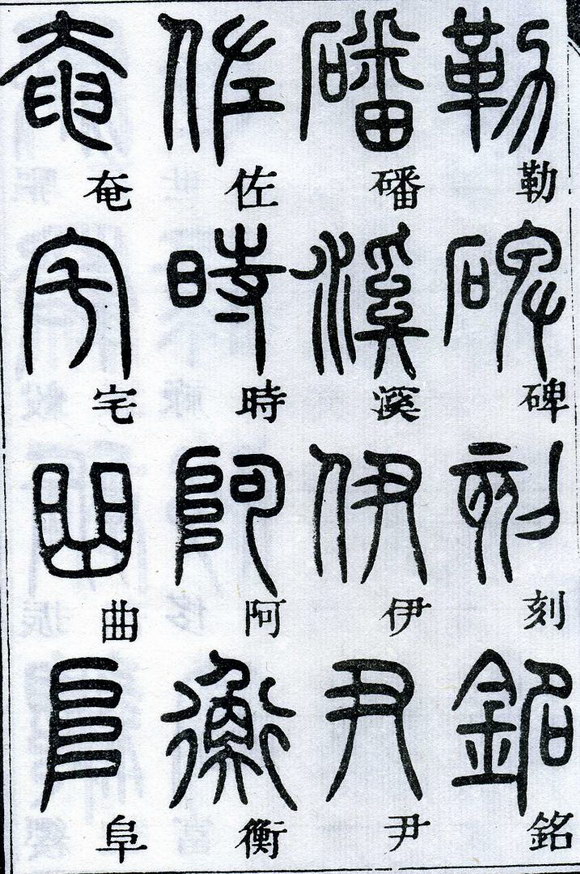 勒碑刻銘
磻溪伊尹
佐時阿衡
奄宅曲阜